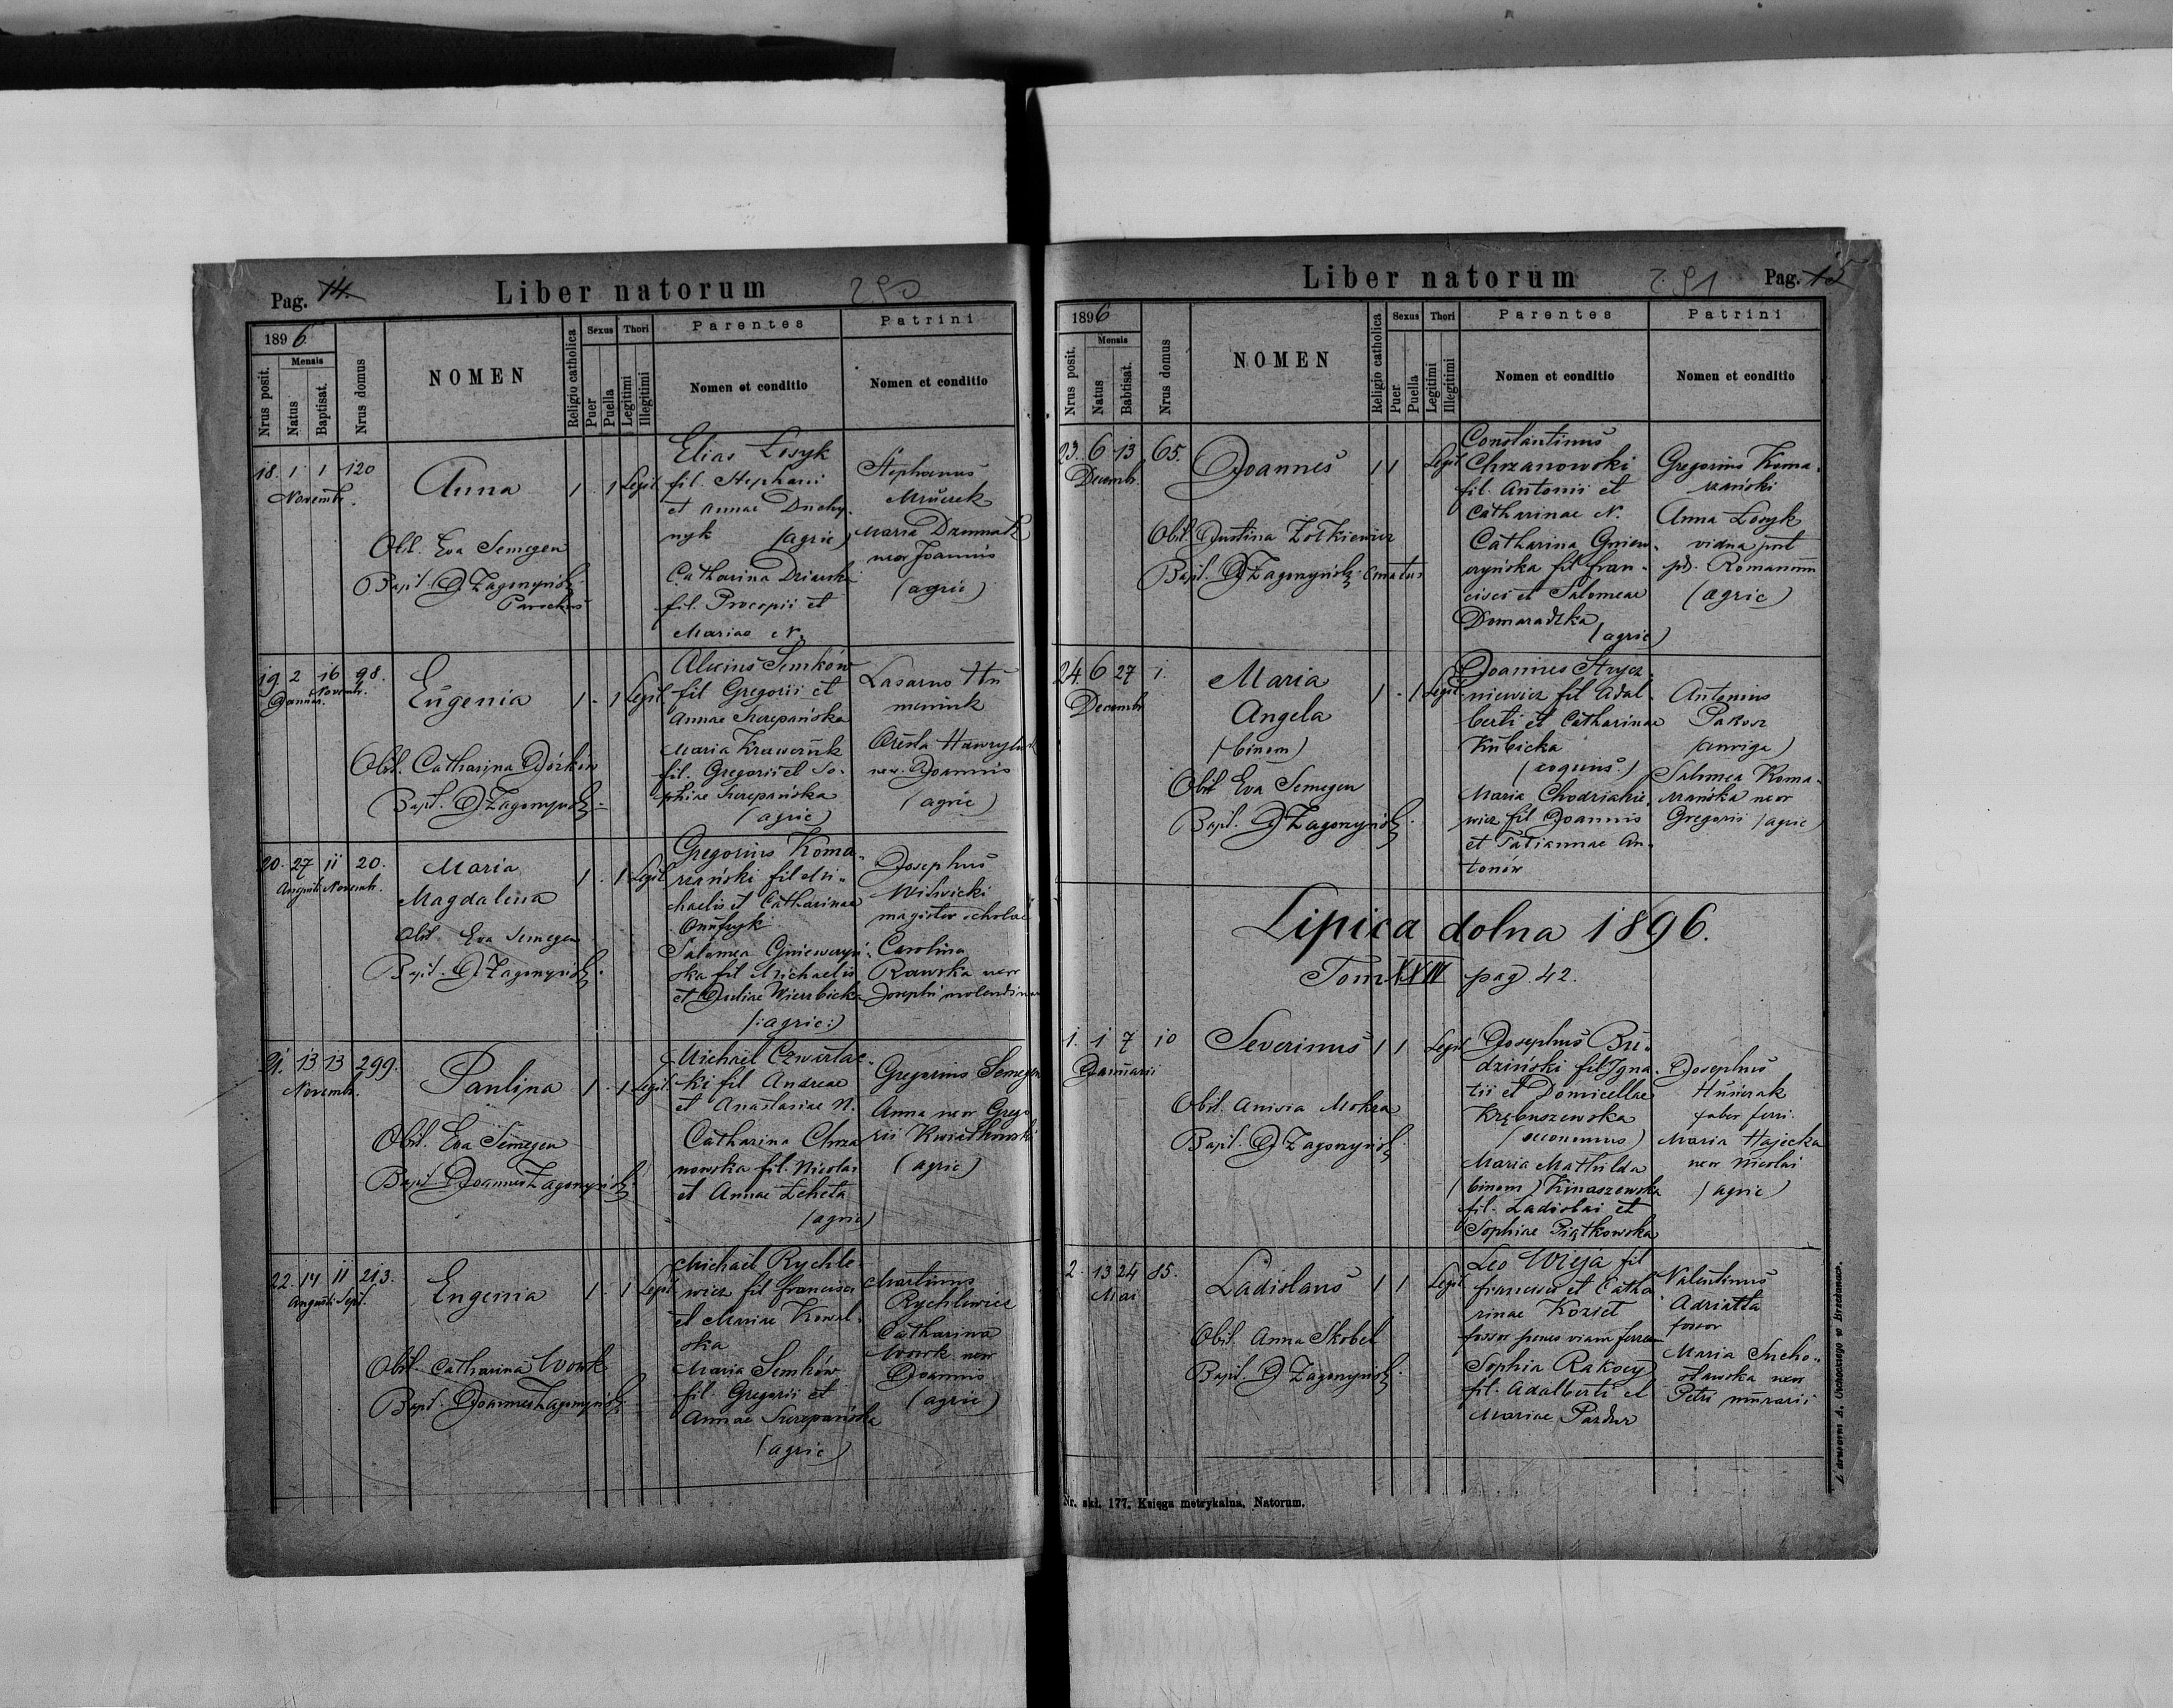 Pag. 14.
Liber natorum
290
1896.
Nrus posit.
Mensis
Natus
Baptisat.
Nrus domus
NOMEN
Religio catholica
Sexus
Puer
Puella
Thori
Legitimi
Illegitimi
Parentes
Nomen et conditio
Patrini
Nomen et conditio
18. 1 1 120
Novembr.
Anna
1 . 1 Legit
Obst. Eva Semegen
Bapt. J Zagonyński
Parochus
Elias Łosyk
fil. Stephani
et Annae Duchy
nyk (agric)
Catharina Dziurska
fil. Procopii et
Mariae N.
Stephanus
Mruczek
Maria
uxor Joannis
(agric)
19. 2 16 98.
Januar. Novembr.
Eugenia
1 - 1 Legit
Obst. Catharina Dórków
Bapt. J Zagonyński
Alexius Semków
fil Gregorii et
Annae Szczepańska
Maria Krawczuk
fil. Gregorii et So-
phiae Szczepańska
(agric)
Lasarus Hu
meniuk
uxor Joannis
(agric)
20. 27 11 20.
Augusti Novemb.
Maria
Magdalena
1 . 1 Legit
Obst. Eva Semegen
Bapt. J Zagonyński
Gregorius Koma„
rzański fil Mi„
chaelis et Catharinae
Onufryk
Salomea Gniewczyń
ska fil Michaelis
et Juliae Wierzbicka
(:agric:)
Josephus
Witwicki
magister scholae
Carolina
Rawska uxor
Josephi molendinar
21. 13 13 299.
Novembr.
Paulina
1 . 1 Legit
Obst. Eva Semegen
Bapt. Joannes Zagonyński
Michaël Czwartac-
ki fil Andreae
et Anastasiae N.
Catharina Chrza
nowska fil. Nicolai
et Annae Łeheta
(agric)
Gregorius Semegen
Anna uxor Grego
rii Kwiatkowski
(agric)
22. 14 11 213.
Augusti Sept.
Eugenia
1 . 1 Legit
Obst. Catharina Wowk
Bapt. Joannes Zagonyński
Michaël Rychle
wicz fil francisci
et Mariae Kowal-
ska
Maria Semków
fil. Gregorii et
Annae Szczepańska
(agric)
Martinus
Rychlewicz
Catharina
Wowk uxor
Joannis
(agric)
Liber natorum
291
Pag. 15
1896
Nrus posit.
Mensis
Natus
Babtisat.
Nrus domus
NOMEN
Religio catholica
Sexus
Puer
Puella
Thori
Legitimi
Illegitimi
Parentes
Nomen et conditio
Patrini
Nomen et conditio
23. 6 13 65.
Decembr.
Joannes
1 1 Legit
Obst. Justina Żołkiewicz
Bapt. J Zagonyński
Constantinus
Chrzanowski
fil. Antonii et
Catharinae N.
Catharina Gniew-
czyńska fil fran-
cisci et Salomeae
Domaradzka
(agric)
Gregorius Koma-
rzański
Anna Łosyk
vidua post
pd. Romanum
(agric)
24. 6 27 1.
Decembr
Maria
Angela
(binom)
1 - 1 Legit
Obst Eva Semegen
Bapt. J Zagonyński
Joannes Strycz
niewicz fil Adal-
berti et Catharinae
Kubicka
(coquus.)
Maria Chodziakie
wicz fil Joannis
et Tatiannae An-
tonów
Antonius
Pakosz
(auriga)
Salomea Koma-
rzańska uxor
Gregorii (agric)
Lipica dolna 1896.
Tom XXIII pag. 42.
1. 1 7 10
Januarii
Severinus
1 1 Legit
Obst. Anisia Mokra
Bapt. J Zagonyński
Josephus Bu„
dziński fil Igna-
tii et Domicellae
Krębuszewska
(oeconomus)
Maria Mathilda
(binom) Kinaszewska
fil. Ladislai et
Sophiae Piątkowska
Josephus
Huśierak
faber ferri.
Maria Hajecka
uxor Nicolai
(agric)
2. 13 24 85.
Mai
Ladislaus
1 1 Legit
Obst. Anna Skobel
Bapt. J Zagonyński
Leo Wieja fil
francisci et Catha
rinae Koziet
fossor penes viam ferream
Sophia Rakoczy
fil. Adalberti et
Mariae Pazdur
Valentinus
Adriatta
fossor
Maria Sucho„
stawska uxor
Petri murarii
Nr. skł. 177. Księga metrykalna. Natorum.